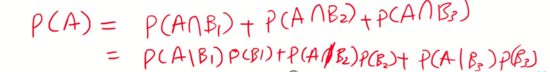 P(A) = P(A∩B₁) + P(A∩B₂) + P(A∩B₃)
= P(A|B₁) P(B₁) + P(A|B₂) P(B₂) + P(A|B₃) P(B₃)